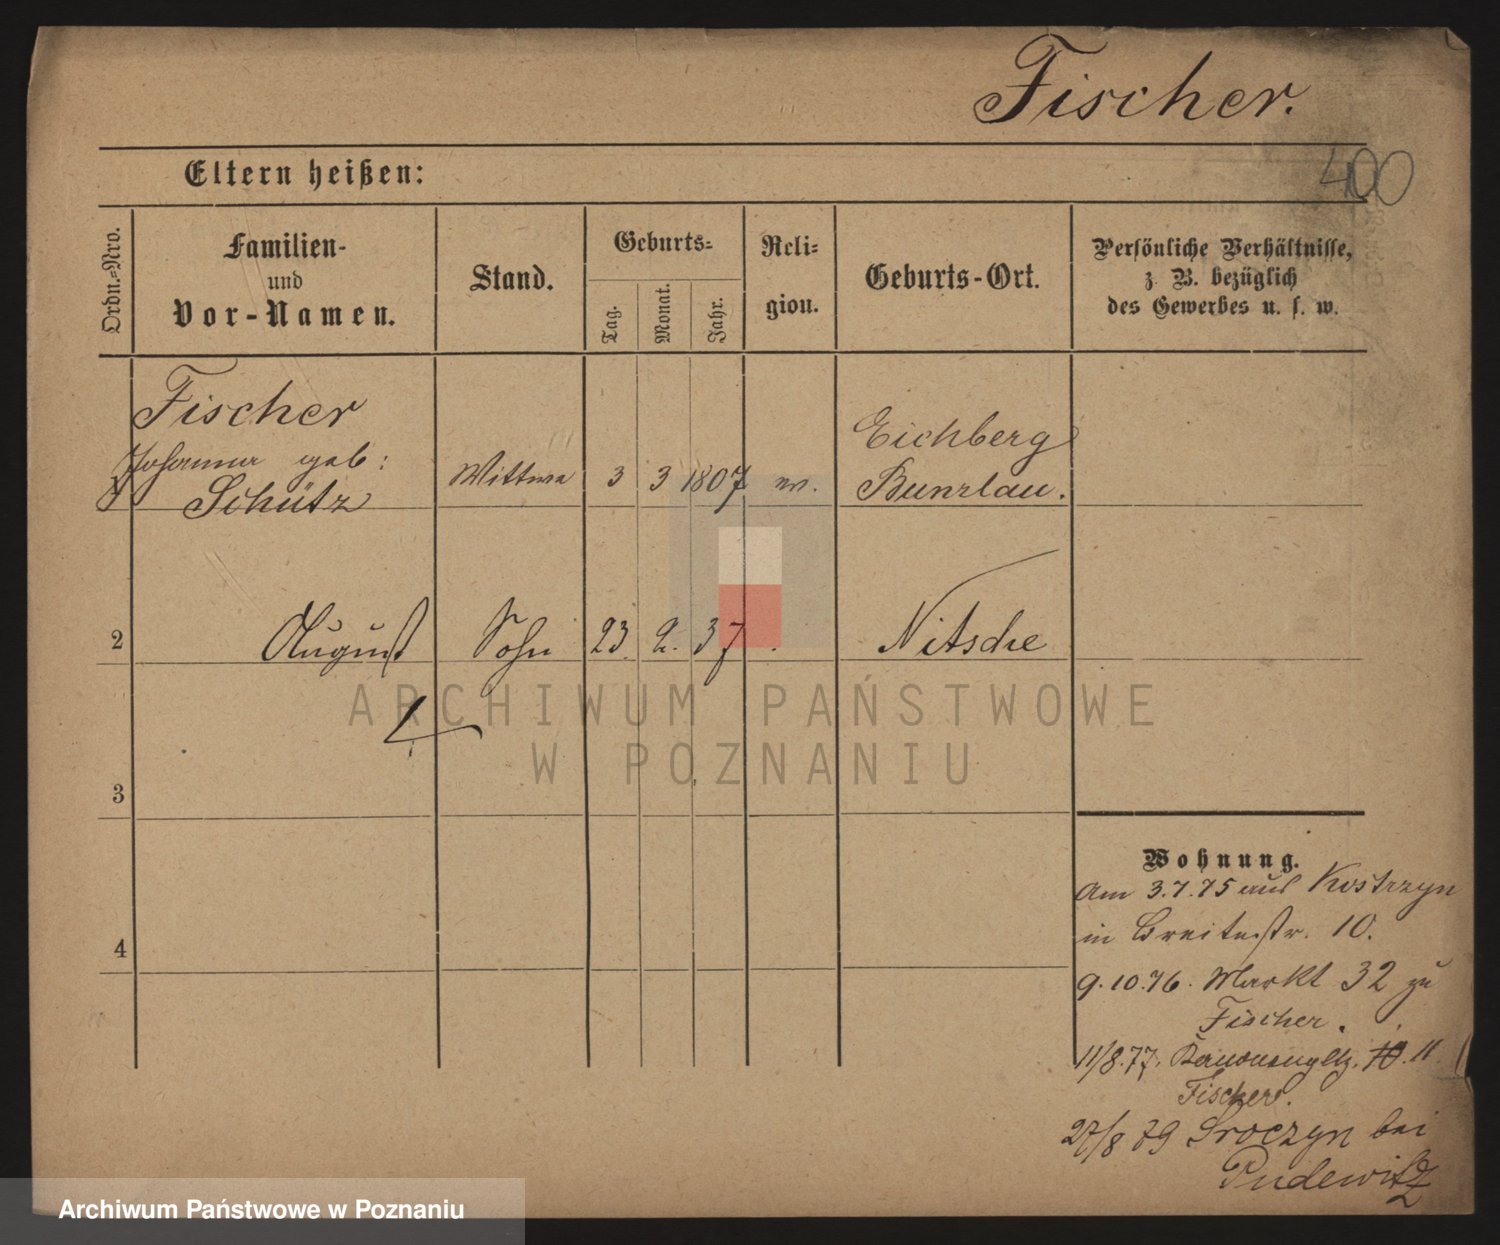 Fischer.
400
Eltern heißen:
Ordn.=Nro.
Familien-
und
Vor-Namen.
Stand.
Geburts=
Tag.
Monat.
Jahr.
Reli=
gion.
Geburts-Ort.
Persönliche Verhältnisse,
z. B. bezüglich
des Gewerbes u. s. w.
Fischer
Johanna geb:
Schütz
Wittwe 3 3 1807 ev.
Eichberg
Bunzlau.
2 August Sohn 23. 2. 37 Nitsche
3
4
Wohnung.
Am 3.7.75 aus Kostrzyn
in Breitestr. 10.
9.10.76. Markt 32 zu
Fischer.
11/8.77. 10. 11
Fischer.
27/8 79 Sroczyn bei
Pudewitz
ARCHIWUM PAŃSTWOWE
W POZNANIU
Archiwum Państwowe w Poznaniu